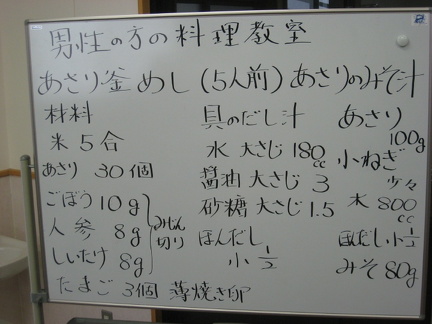 男性の方の料理教室
あさり釜めし(5人前)
材料
米 5合
あさり 30個
ごぼう 10g
人参 8g
しいたけ 8g
みじん切り
たまご 3個 薄焼き卵
具のだし汁
水 大さじ 180cc
醤油 大さじ 3
砂糖 大さじ 1.5
ほんだし
小 1/2
あさりのみそ汁
あさり
100g
小ねぎ
少々
水 800cc
ほんだし小1/2
みそ 80g